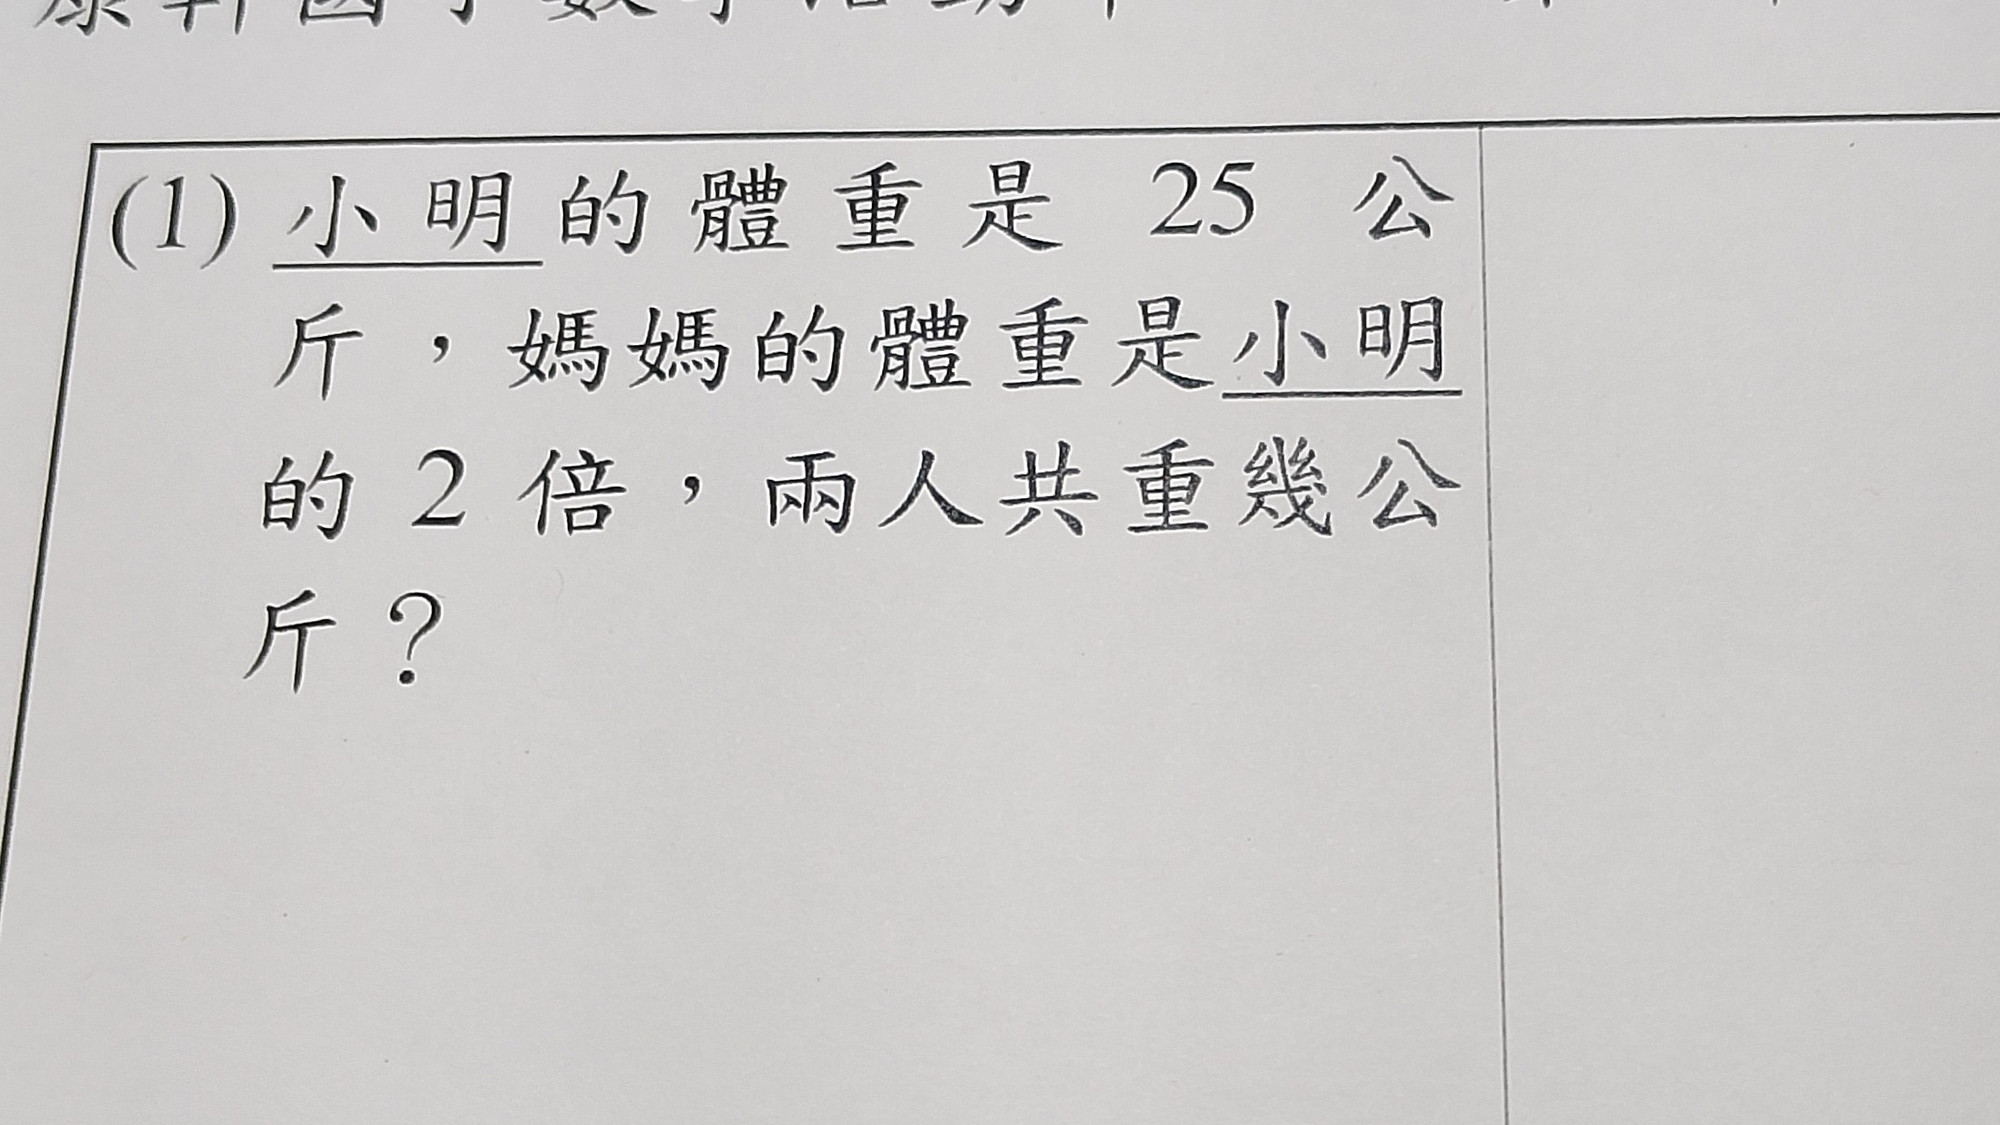 (1) 小明的體重是 25 公
斤，媽媽的體重是小明
的 2 倍，兩人共重幾公
斤？